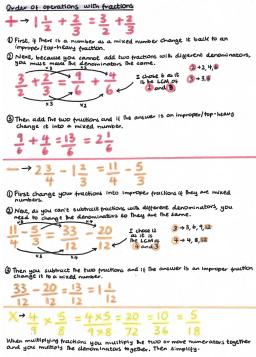 Order of operations with fractions
+ → 1 1/2 + 2/3 = 3/2 + 2/3
① First, if there is a number as a mixed number change it back to an
improper/top-heavy fraction.
② Next, because you cannot add two fractions with different denominators,
you must make the denominators the same.
×3 ×2
3/2 + 2/3 = 9/6 + 4/6
×3 ×2
I chose 6 as it
is the LCM of
2 and 3
2 → 2, 4, 6
3 → 3, 6
③ Then add the two fractions and if the answer is an improper/top-heavy
change it into a mixed number.
9/6 + 4/6 = 13/6 = 2 1/6
— → 2 3/4 - 1 2/3 = 11/4 - 5/3
① First change your fractions into improper fractions if they are mixed
numbers.
② Now, as you can't subtract fractions with different denominators, you
need to change the denominators so they are the same.
×3 ×4
11/4 - 5/3 = 33/12 - 20/12
×3 ×4
I chose 12
as it is
the LCM of
4 and 3
3 → 3, 6, 9, 12
4 → 4, 8, 12
③ Then you subtract the two fractions and if the answer is an improper fraction
change it to a mixed number.
33/12 - 20/12 = 13/12 = 1 1/12
× → 4/9 × 5/8 = 4×5/9×8 = 20/72 = 10/36 = 5/18
When multiplying fractions you multiply the two or more numerators together
and you multiply the denominators together. Then simplify.